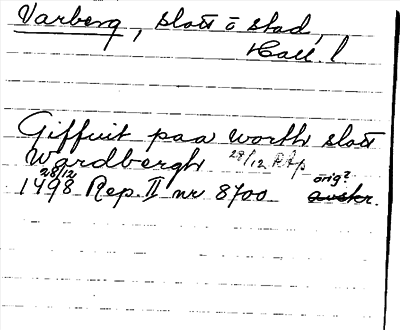 Varberg, slott o stad,
Hall. l
Giffuit paa worth slott
Wardbergh 28/12 RAp
28/12 orig?
1498 Rep. II nr 8700 avskr.